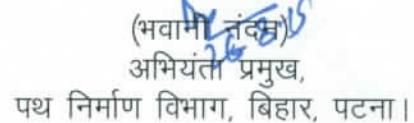 (भवानी नंदन)
26.8.15
अभियंता प्रमुख,
पथ निर्माण विभाग, बिहार, पटना।